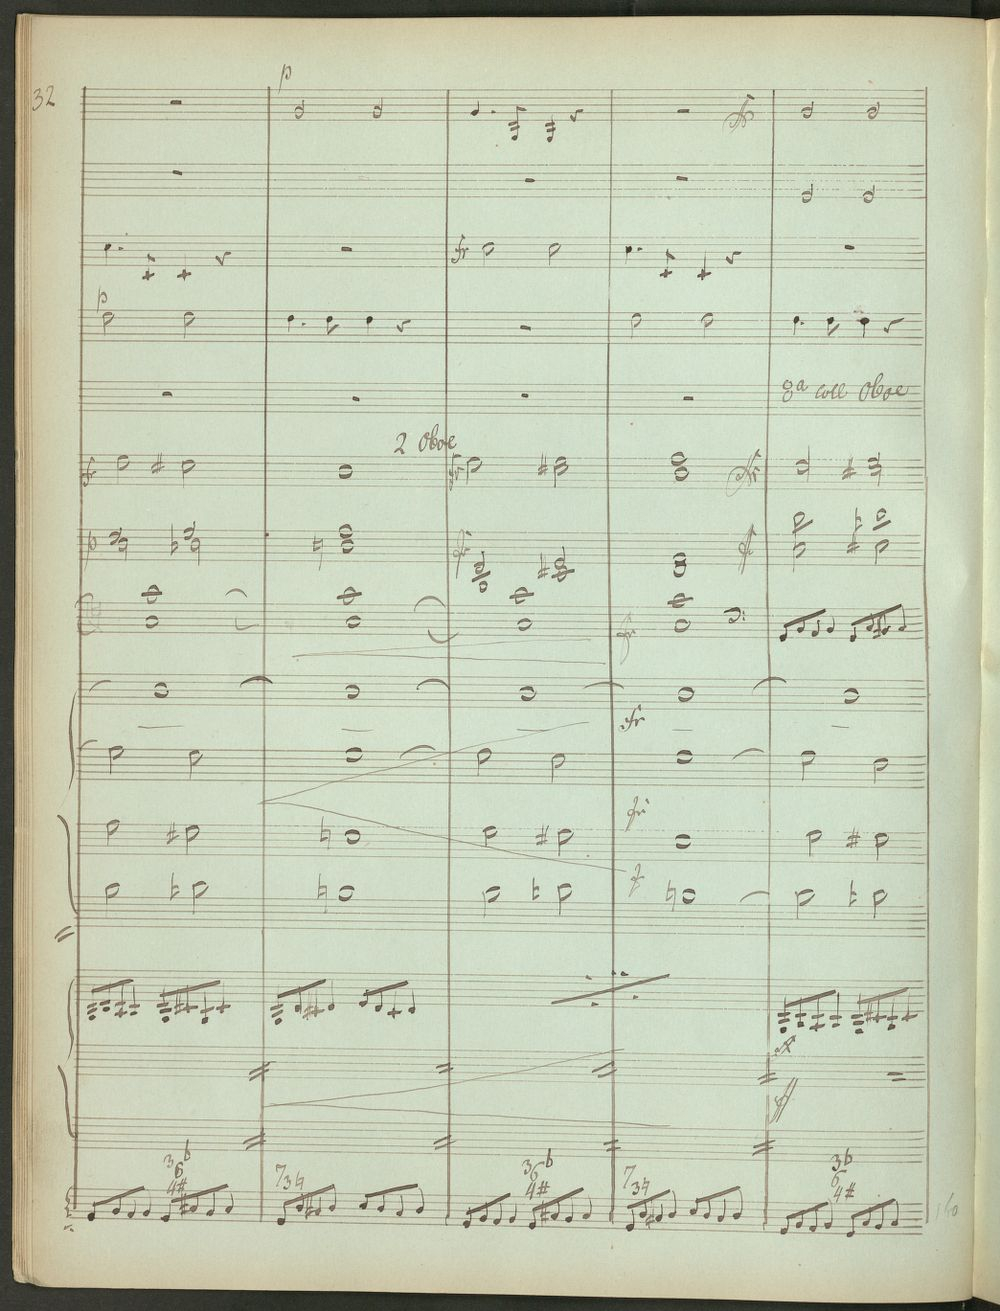 32
p
fr
p
8a coll Oboe
2 Oboe
fr
p
fr
fr
fr
ff
3b
6
4#
7
3♮
3b
6
4#
7
3♮
3b
6
4#
160